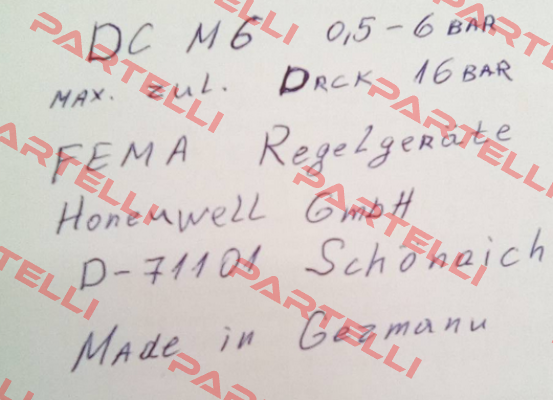 DC M6 0,5-6 BAR
MAX. zul. DRCK 16 BAR
FEMA Regelgeräte
Honeuwell GmbH
D-71101 Schönaich
MAde in Germanu
PARTELLI
PARTELLI
PARTELLI
PARTELLI
PARTELLI
PARTELLI
PARTELLI
PARTELLI
PARTELLI